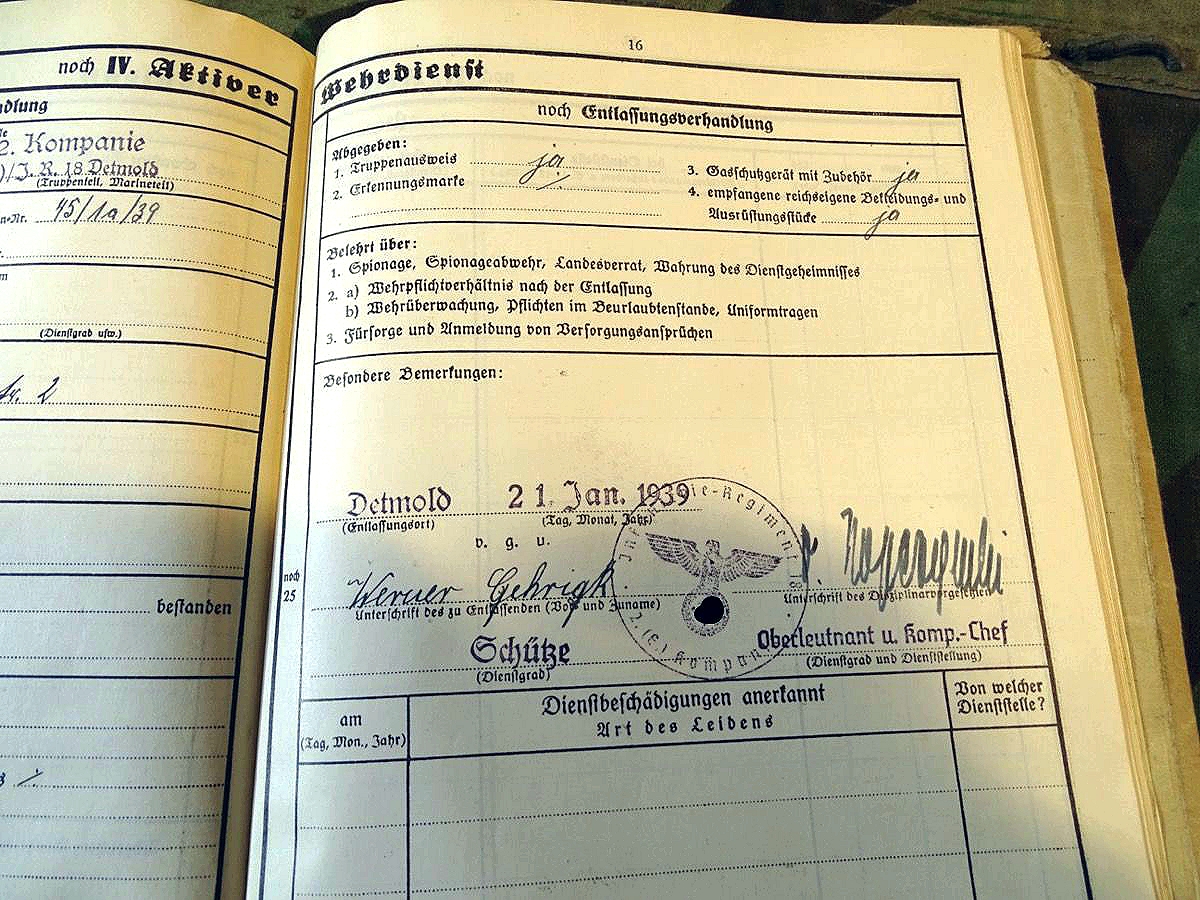 noch IV. Aktiver
dlung
2. Kompanie
)/J. R. 18 Detmold
(Truppenteil, Marineteil)
n-Nr. 45/1a/39
(Dienstgrad usw.)
2
bestanden
16
Wehrdienst
noch Entlassungsverhandlung
Abgegeben:
1. Truppenausweis ja
2. Erkennungsmarke ⁒
3. Gasschutzgerät mit Zubehör ja
4. empfangene reichseigene Bekleidungs- und
Ausrüstungsstücke ja
Belehrt über:
1. Spionage, Spionageabwehr, Landesverrat, Wahrung des Dienstgeheimnisses
2. a) Wehrpflichtverhältnis nach der Entlassung
b) Wehrüberwachung, Pflichten im Beurlaubtenstande, Uniformtragen
3. Fürsorge und Anmeldung von Versorgungsansprüchen
Besondere Bemerkungen:
Detmold 21. Jan. 1939
(Entlassungsort) (Tag, Monat, Jahr)
v. g. u.
noch
25
Werner Gehrigk
Unterschrift des zu Entlassenden (Vor- und Zuname)
Unterschrift des Disziplinarvorgesetzten
Infanterie-Regiment 18
2. (E.) Kompanie
Schütze
(Dienstgrad)
Oberleutnant u. Komp.-Chef
(Dienstgrad und Dienststellung)
am
(Tag, Mon., Jahr)
Dienstbeschädigungen anerkannt
Art des Leidens
Von welcher
Dienststelle?